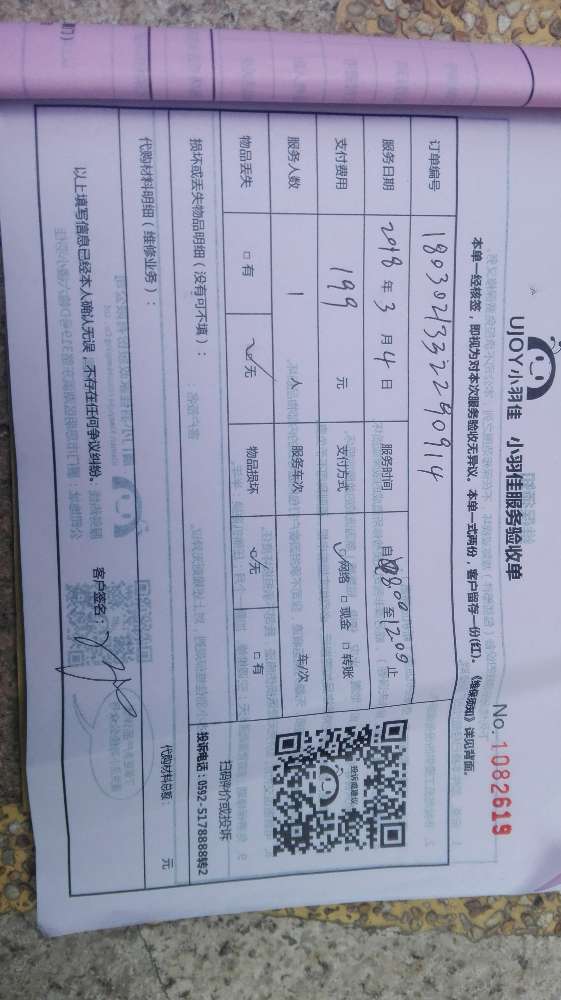 UJOY小羽佳 小羽佳服务验收单
No. 1082619
本单一经核签，即视为对本次服务验收无异议。本单一式两份，客户留存一份(红)。《维保须知》详见背面。
订单编号 180302133229 0914
服务日期 2018 年 3 月 4 日 服务时间 自 0800 至 1200 止
支付费用 199 元 支付方式 ☑网络 □ 现金 □ 转账
服务人数 1 人 服务车次 车/次
物品丢失 □ 有 ☑无 物品损坏 ☑无 □ 有
投诉或建议
扫码评价或投诉
投诉电话：0592-5178888转2
损坏或丢失物品明细（没有可不填）：
代购材料明细（维修业务）： 代购材料总额： 元
以上填写信息已经本人确认无误，不存在任何争议纠纷。 客户签名：